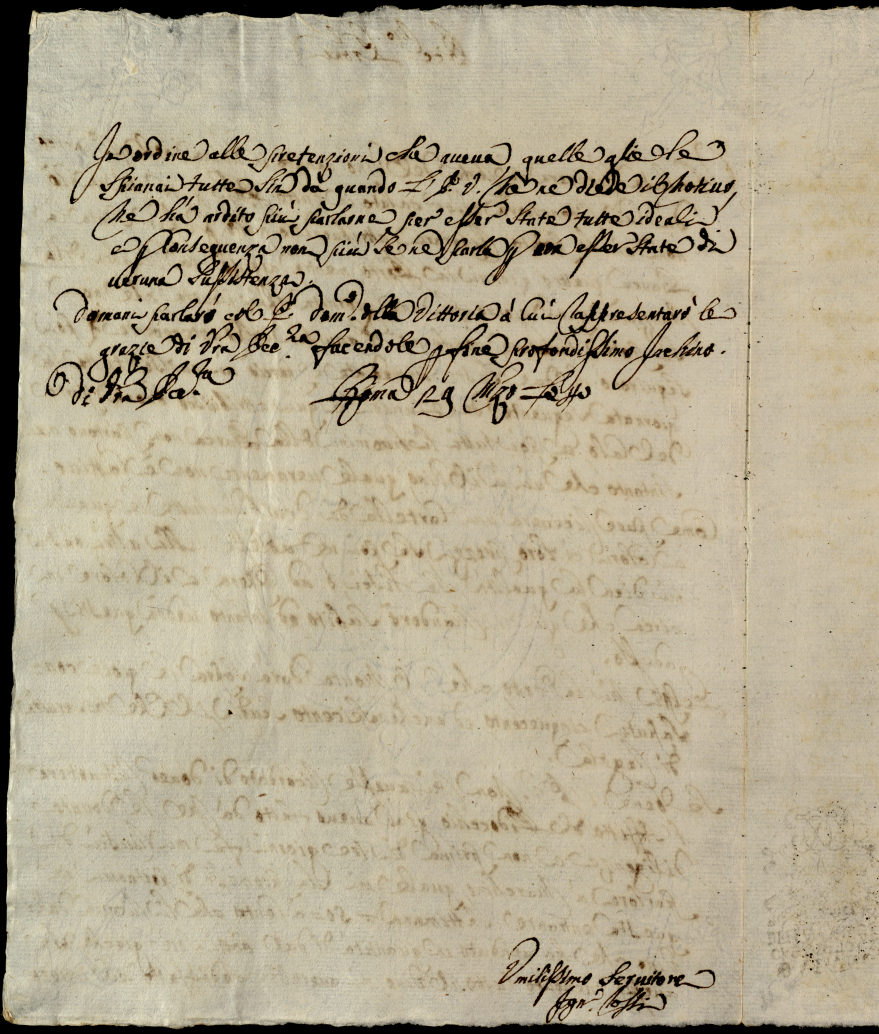 In ordine alle pretenzioni che aueua, quelle glie le
spianai tutte sin da quando V. P. ne diede il motiuo,
Nè hà ardito più parlarne per esser state tutte ideali
e p Conseguenza non più se ne parla p non esser state di
ueruna sussistenza.
Domani parlarò col Sr Dom.co della Vittoria à lui rappresentarò le
grazie di Vra Ecc.za facendole p fine profondissimo Inchino.
Di Vra Ecc.za Roma 29 Mzo
Vmilissimo Seruitore
Ign.o